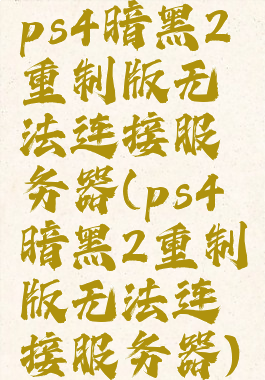 ps4暗黑2
重制版无
法连接服
务器(ps4
暗黑2重制
版无法连
接服务器)